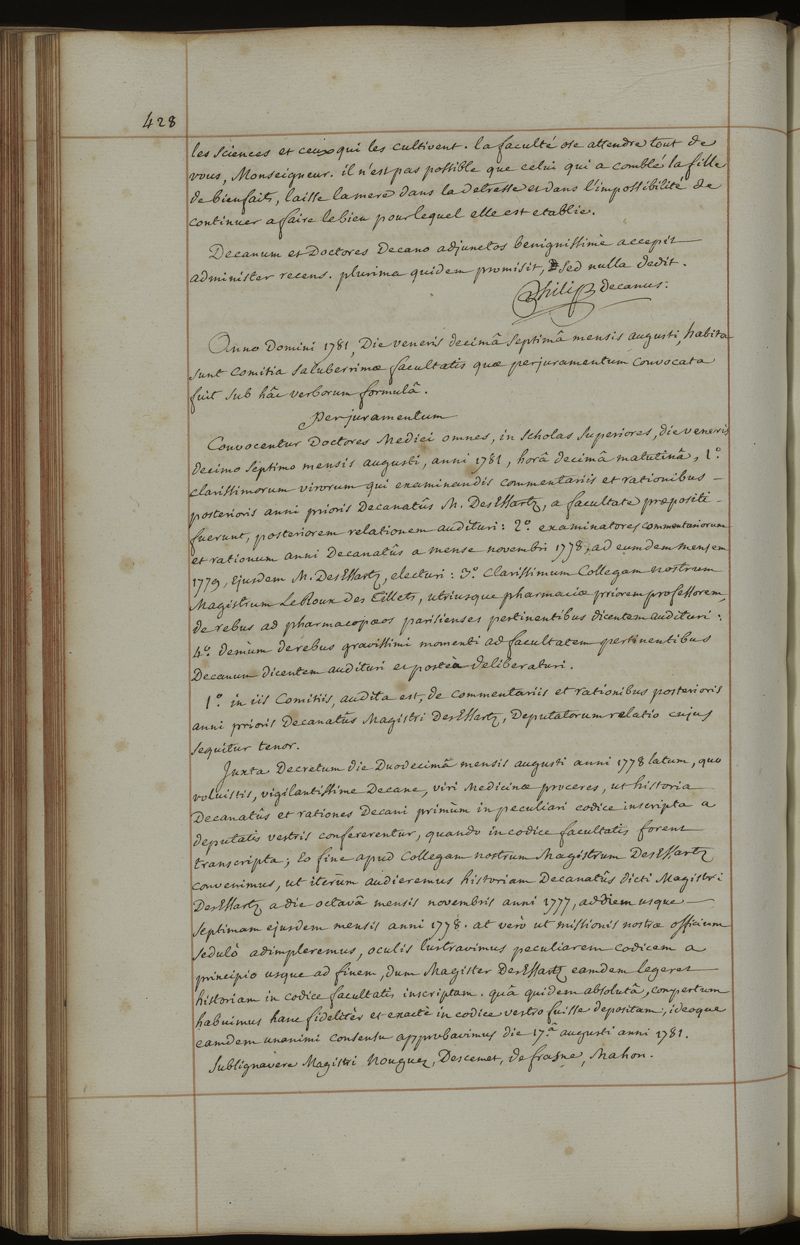 428
les sciences et ceux qui les cultivent. la faculté ose attendre tout de
vous, Monseigneur. il n'est pas possible que celui qui a comblé la fille
de bienfaits, laisse la mere dans la detresse et dans l'impossibilité de
continuer a faire le bien pour lequel elle est etablie.
Decanum et Doctores Decano adjunctos benignissimè accepit
administer recens. plurima quidem promisit, sed nulla dedit.
Philip decanus.
Anno Domini 1781, Die veneris decimâ septimâ mensis augusti, habita
sunt Comitia saluberrimæ facultatis quæ perjuramentum convocata
fuit sub hâc verborum formulâ.
Perjuramentum
Convocentur Doctores Medici omnes, in scholas superiores, die veneris
decimo septimo mensis augusti, anni 1781, horâ decimâ matutinâ, 1.o
clarissimorum virorum qui examinandis commentariis et rationibus
posterioris anni prioris Decanatûs M. DesEssartz, a facultate præpositi
fuerunt, posteriorem relationem audituri: 2.o examinatores commentariorum
et rationum anni Decanatûs a mense novembri 1778, ad eumdem mensem
1779, ejusdem M. DesEssartz, electuri: 3.o clarissimum Collegam nostrum
Magistrum LeRoux des Tillets, utriusque pharmaciæ priorem professorem,
de rebus ad pharmacopæos parisienses pertinentibus dicentem audituri:
4.o demùm de rebus gravissimi momenti ad facultatem pertinentibus
Decanum dicentem audituri et posteà deliberaturi.
1.o in iis Comitiis, audita est, de commentariis et rationibus posterioris
anni prioris Decanatûs Magistri DesEssartz, Deputatorum relatio cujus
sequitur tenor.
Juxta Decretum die Duodecimâ mensis augusti anni 1778 latum, quo
voluistis, vigilantissime Decane, viri Medicinæ proceres, ut historia
Decanatûs et rationes Decani primùm in peculiari codice inscripta a
deputatis vestris confererentur, quando in codice facultatis forent
transcripta; Eo fine apud Collegam nostrum Magistrum DesEssartz
convenimus, ut iterùm audieremus historiam Decanatûs dicti Magistri
DesEssartz a die octavâ mensis novembris anni 1777, ad diem usque
septimam ejusdem mensis anni 1778. at verò ut missionis nostræ officium
sedulò adimpleremus, oculis lustravimus peculiarem codicem a
principio usque ad finem, dum Magister DesEssartz eamdem legeret
historiam in codice facultatis inscriptam. quâ quidem absolutâ, compertum
habuimus hanc fidelitèr et exactè in codice vestro fuisse depositam, ideoque
eamdem unanimi consensu approbavimus die 17.a augusti anni 1781.
Subsignavere Magistri Nouguez, Descemet, de frasne, Mahon.